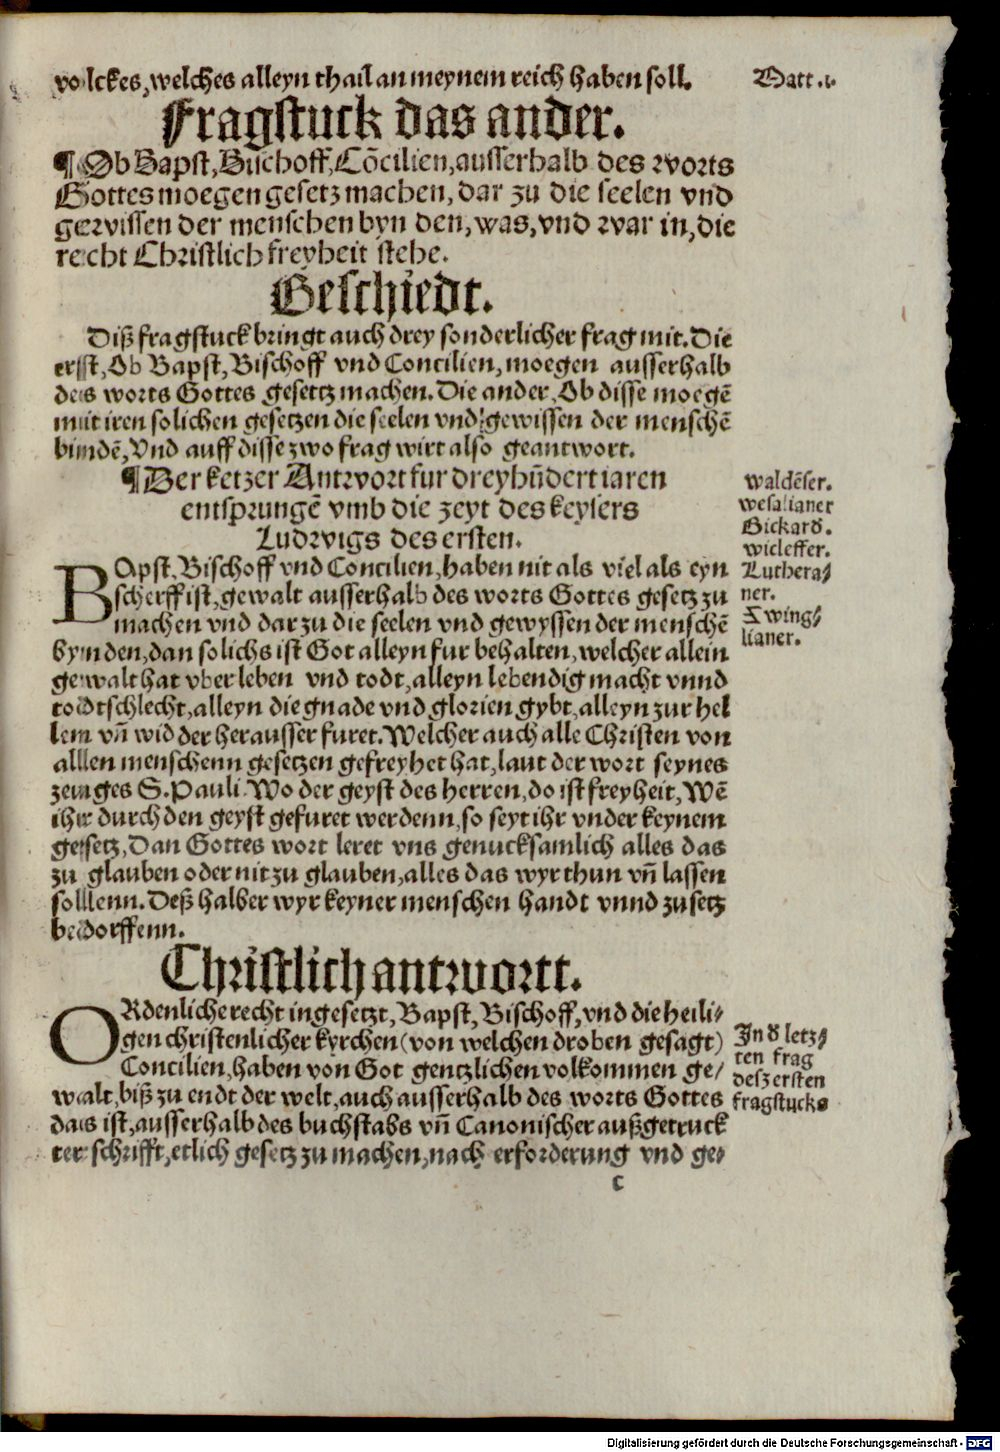 volckes, welches alleyn thail an meynem reich haben soll.
Matt. 1.
Fragstuck das ander.
¶ Ob Bapst, Bischoff, Cõcilien, ausserhalb des worts
Gottes moegen gesetz machen, dar zu die seelen vnd
gewissen der menschen byn den, was, vnd war in, die
recht Christlich freyheit stehe.
Geschiedt.
Diß fragstuck bringt auch drey sonderlicher frag mit. Die
erst, Ob Bapst, Bischoff vnd Concilien, moegen ausserhalb
des worts Gottes gesetz machen. Die ander, Ob disse moegẽ
mit iren solichen gesetzen die seelen vnd gewissen der menschẽ
bindẽ, Vnd auff disse zwo frag wirt also geantwort.
¶ Der ketzer Antwort fur dreyhũdert iaren
entsprungẽ vmb die zeyt des keysers
Ludwigs des ersten.
waldẽser.
wesalianer
Bickard.
wicleffer.
Luthera/
ner.
Zwing/
lianer.
BApst, Bischoff vnd Concilien, haben nit als viel als eyn
scherff ist, gewalt ausserhalb des worts Gottes gesetz zu
machen vnd dar zu die seelen vnd gewyssen der menschẽ
bynden, dan solichs ist Got alleyn fur behalten, welcher allein
gewalt hat vber leben vnd todt, alleyn lebendig macht vnnd
todtschlecht, alleyn die gnade vnd glorien gybt, alleyn zur hel
lem vñ wid der herausser furet. Welcher auch alle Christen von
allen menschenn gesetzen gefreyhet hat, laut der wort seynes
zeuges S. Pauli. Wo der geyst des herren, do ist freyheit, Wẽ
ihr durch den geyst gefuret werdenn, so seyt ihr vnder keynem
gesetz, Dan Gottes wort leret vns genucksamlich alles das
zu glauben oder nit zu glauben, alles das wyr thun vñ lassen
sollenn. Deß halber wyr keyner menschen handt vnnd zusetz
bedorffenn.
Christlich antwortt.
ORdenliche recht ingesetzt, Bapst, Bischoff, vnd die heili/
gen christenlicher kyrchen (von welchen droben gesagt)
Concilien, haben von Got gentzlichen volkommen ge/
walt, biß zu endt der welt, auch ausserhalb des worts Gottes
das ist, ausserhalb des buchstabs vñ Canonischer außgetruck
ter schrifft, etlich gesetz zu machen, nach erforderung vnd ge/
In d letz/
ten frag
desz ersten
fragstucks
c
Digitalisierung gefördert durch die Deutsche Forschungsgemeinschaft - DFG